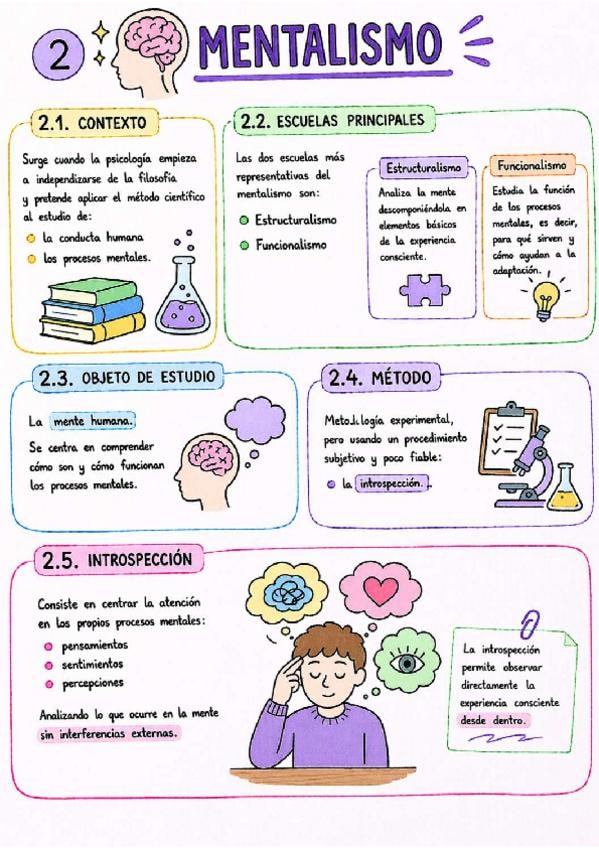 2
MENTALISMO
2.1. CONTEXTO
Surge cuando la psicología empieza
a independizarse de la filosofía
y pretende aplicar el método científico
al estudio de:
la conducta humana
los procesos mentales.
2.2. ESCUELAS PRINCIPALES
Las dos escuelas más
representativas del
mentalismo son:
Estructuralismo
Funcionalismo
Estructuralismo
Analiza la mente
descomponiéndola en
elementos básicos
de la experiencia
consciente.
Funcionalismo
Estudia la función
de los procesos
mentales, es decir,
para qué sirven y
cómo ayudan a la
adaptación.
2.3. OBJETO DE ESTUDIO
La mente humana.
Se centra en comprender
cómo son y cómo funcionan
los procesos mentales.
2.4. MÉTODO
experimental,
pero usando un procedimiento
subjetivo y poco fiable:
la introspección.
2.5. INTROSPECCIÓN
Consiste en centrar la atención
en los propios procesos mentales:
pensamientos
sentimientos
percepciones
Analizando lo que ocurre en la mente
sin interferencias externas.
La introspección
permite observar
directamente la
experiencia consciente
desde dentro.